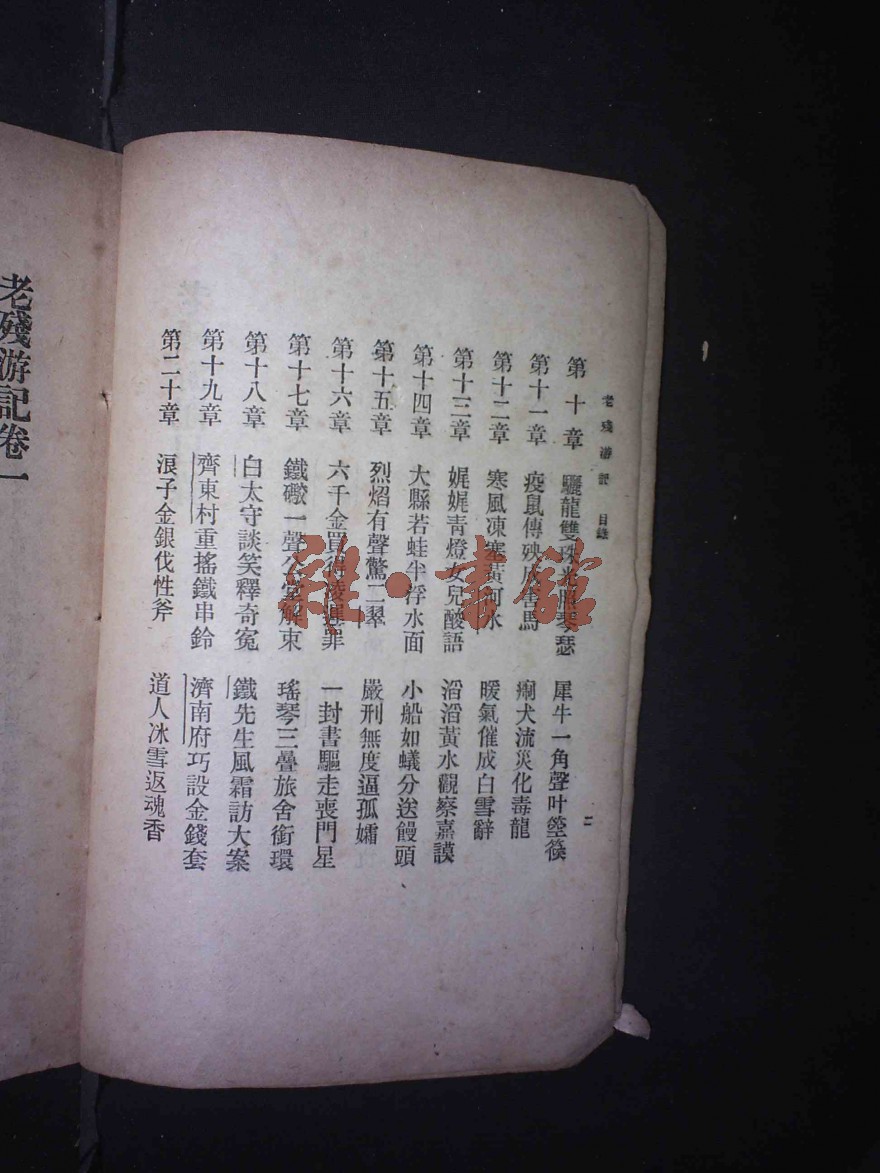 老殘游記 目錄 二
第十章 驪龍雙珠光照琴瑟 犀牛一角聲叶箜篌
第十一章 疫鼠傳殃成害馬 瘈犬流災化毒龍
第十二章 寒風凍塞黃河水 暖氣催成白雪辭
第十三章 娓娓青燈女兒酸語 滔滔黃水觀察嘉謨
第十四章 大縣若蛙半浮水面 小船如蟻分送饅頭
第十五章 烈焰有聲驚二翠 嚴刑無度逼孤孀
第十六章 六千金買得凌遲罪 一封書驅走喪門星
第十七章 鐵礮一聲公堂解束 瑤琴三疊旅舍銜環
第十八章 白太守談笑釋奇冤 鐵先生風霜訪大案
第十九章 齊東村重搖鐵串鈴 濟南府巧設金錢套
第二十章 浪子金銀伐性斧 道人冰雪返魂香
老殘游記卷一
雜·書館